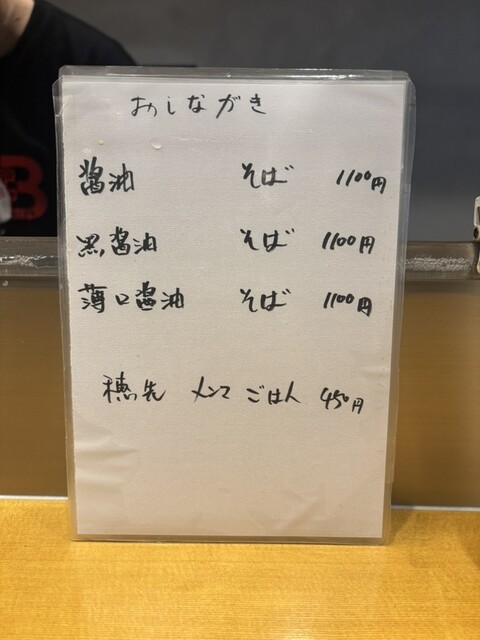 おしながき
醤油 そば 1100円
黒醤油 そば 1100円
薄口醤油 そば 1100円
穂先 メンマ ごはん 450円
B